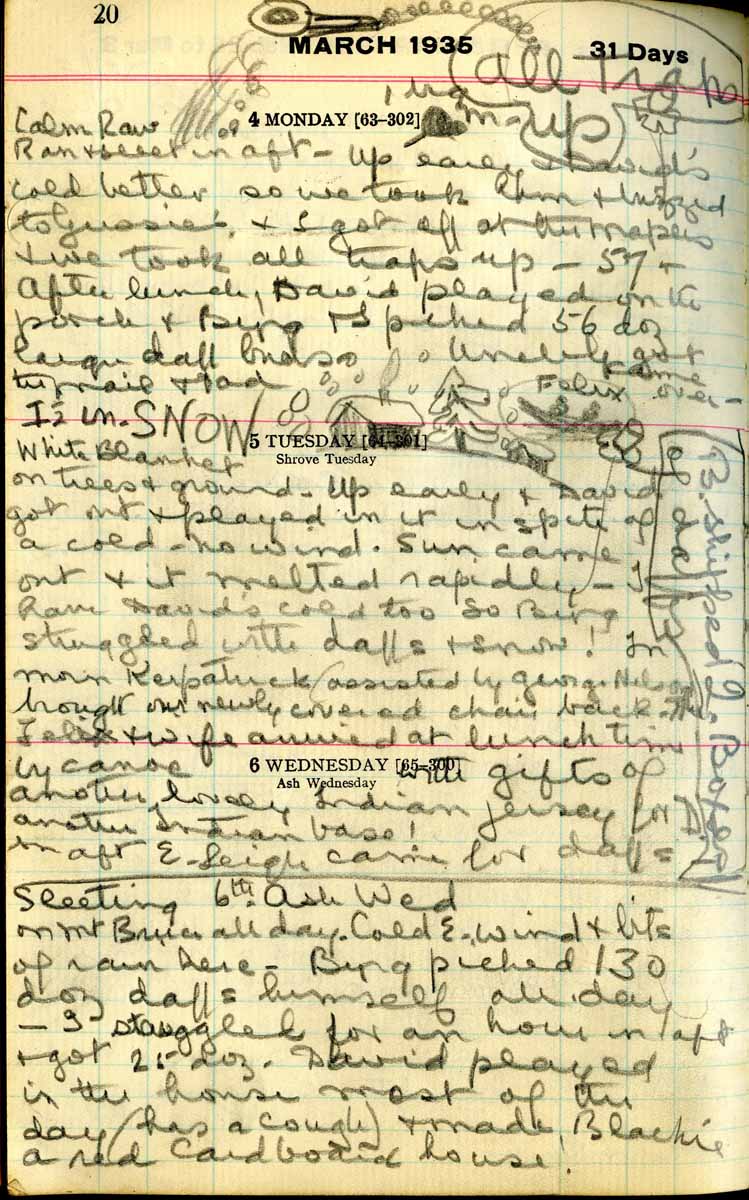 20
MARCH 1935
31 Days
All Traps
up
4 MONDAY [63-302]
Calm Raw
Rain & sleet in aft - Up early & David's
cold better so we took him & buzzed
to Gussie's, & I got off at the
& we took all traps up - 57 -
After lunch, David played on the
porch & Bing & I picked 56 doz
large daff buds. got
the mail & had Felix came over -
I2 in. SNOW
5 TUESDAY [64-301]
Shrove Tuesday
White Blanket
on trees & ground. Up early & David
got out & played in it in spite of
a cold - no wind. Sun came
out & it melted rapidly - I
have David's cold too so Bing
struggled with daffs & snow! In
morn Kerpatrick (assisted by George Nelson
brought our newly covered chair back. The
Felix & wife arrived at lunch time
B. shipped 2 Boxes
of daffs
6 WEDNESDAY [65-300]
Ash Wednesday
by canoe with gifts of
another lovely Indian jersey for
another Indian vase!
in aft E. Leigh came for daffs
Sleeting 6th Ash Wed
on Mt Bruce all day. Cold E. wind & bits
of rain here - Bing picked 130
doz daffs himself all day
- I struggled for an hour in aft
& got 25 doz. David played
in the house most of the
day (has a cough) & made Blackie
a red cardboard house!